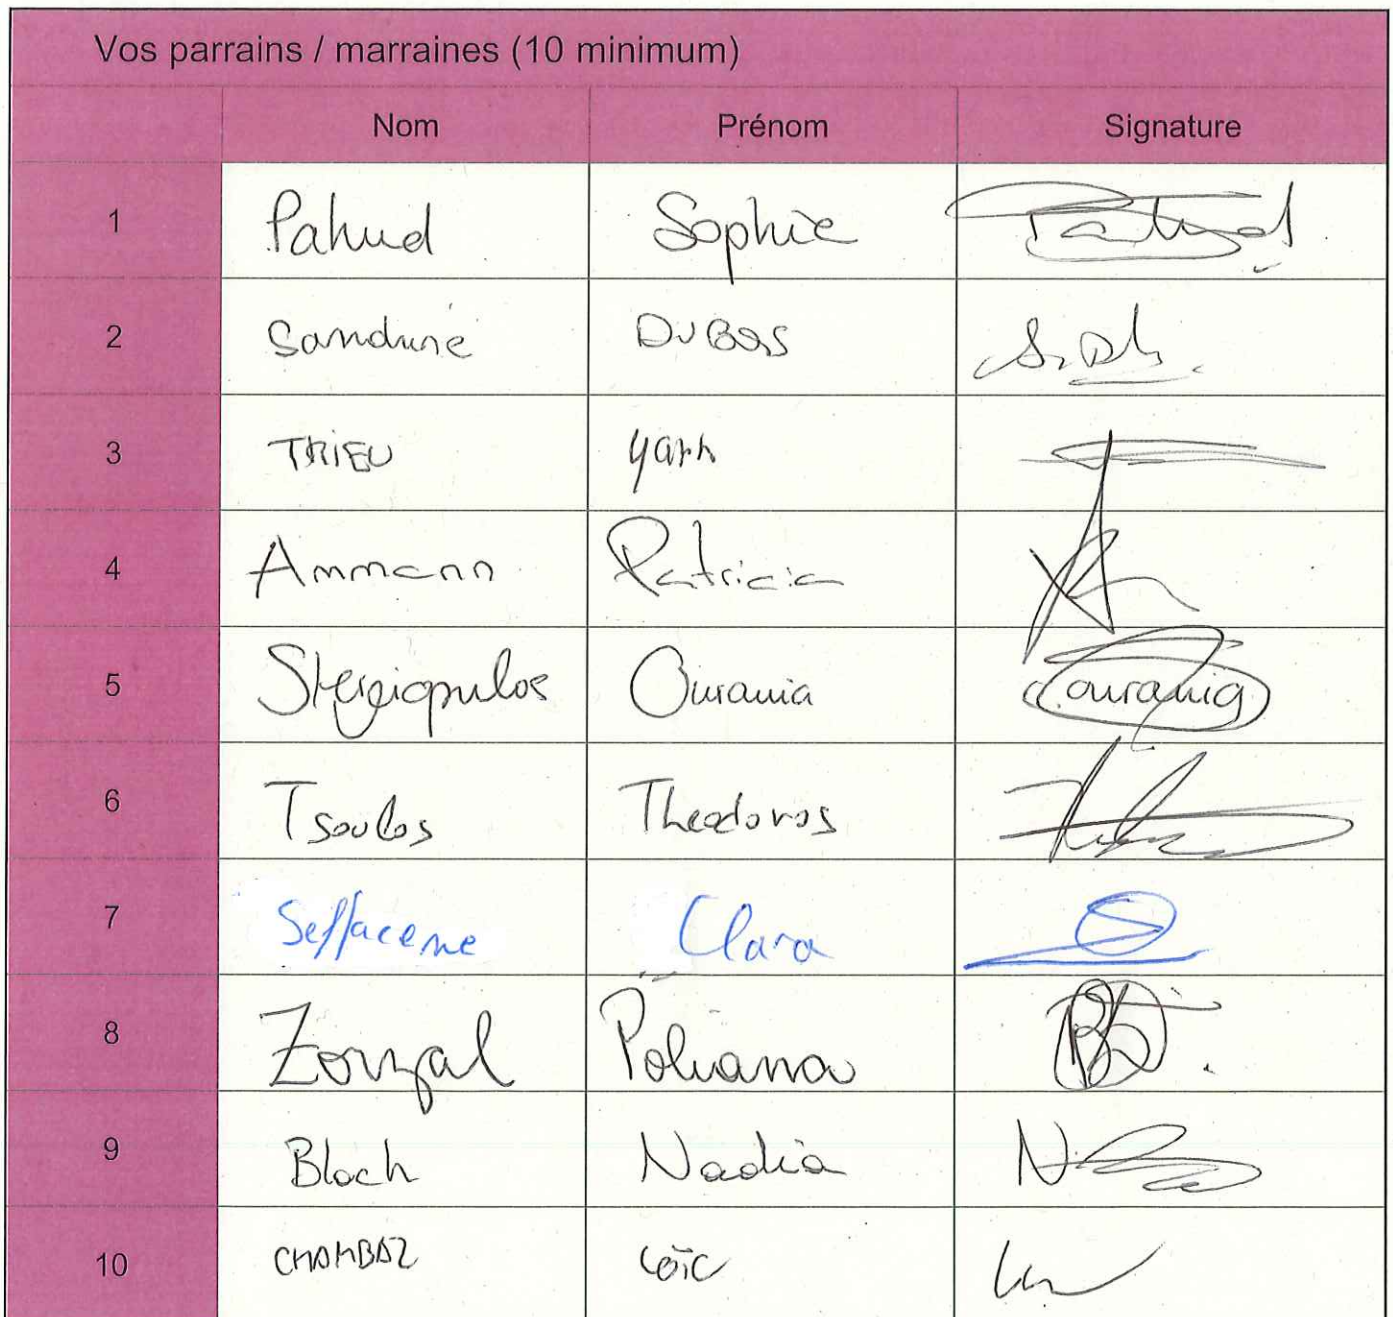 Vos parrains / marraines (10 minimum)
Nom Prénom Signature
1 Pahud Sophie Pahud
2 Sandrine DUBOIS S. Db.
3 TRIEU yann
4 Ammann Patricia
5 Stergiopulos Ourania ourania
6 Tsoulos Theodoros
7 Seffacene Clara
8 Zorzal Poliana
9 Bloch Nadia
10 CHAMBAZ LOÏC